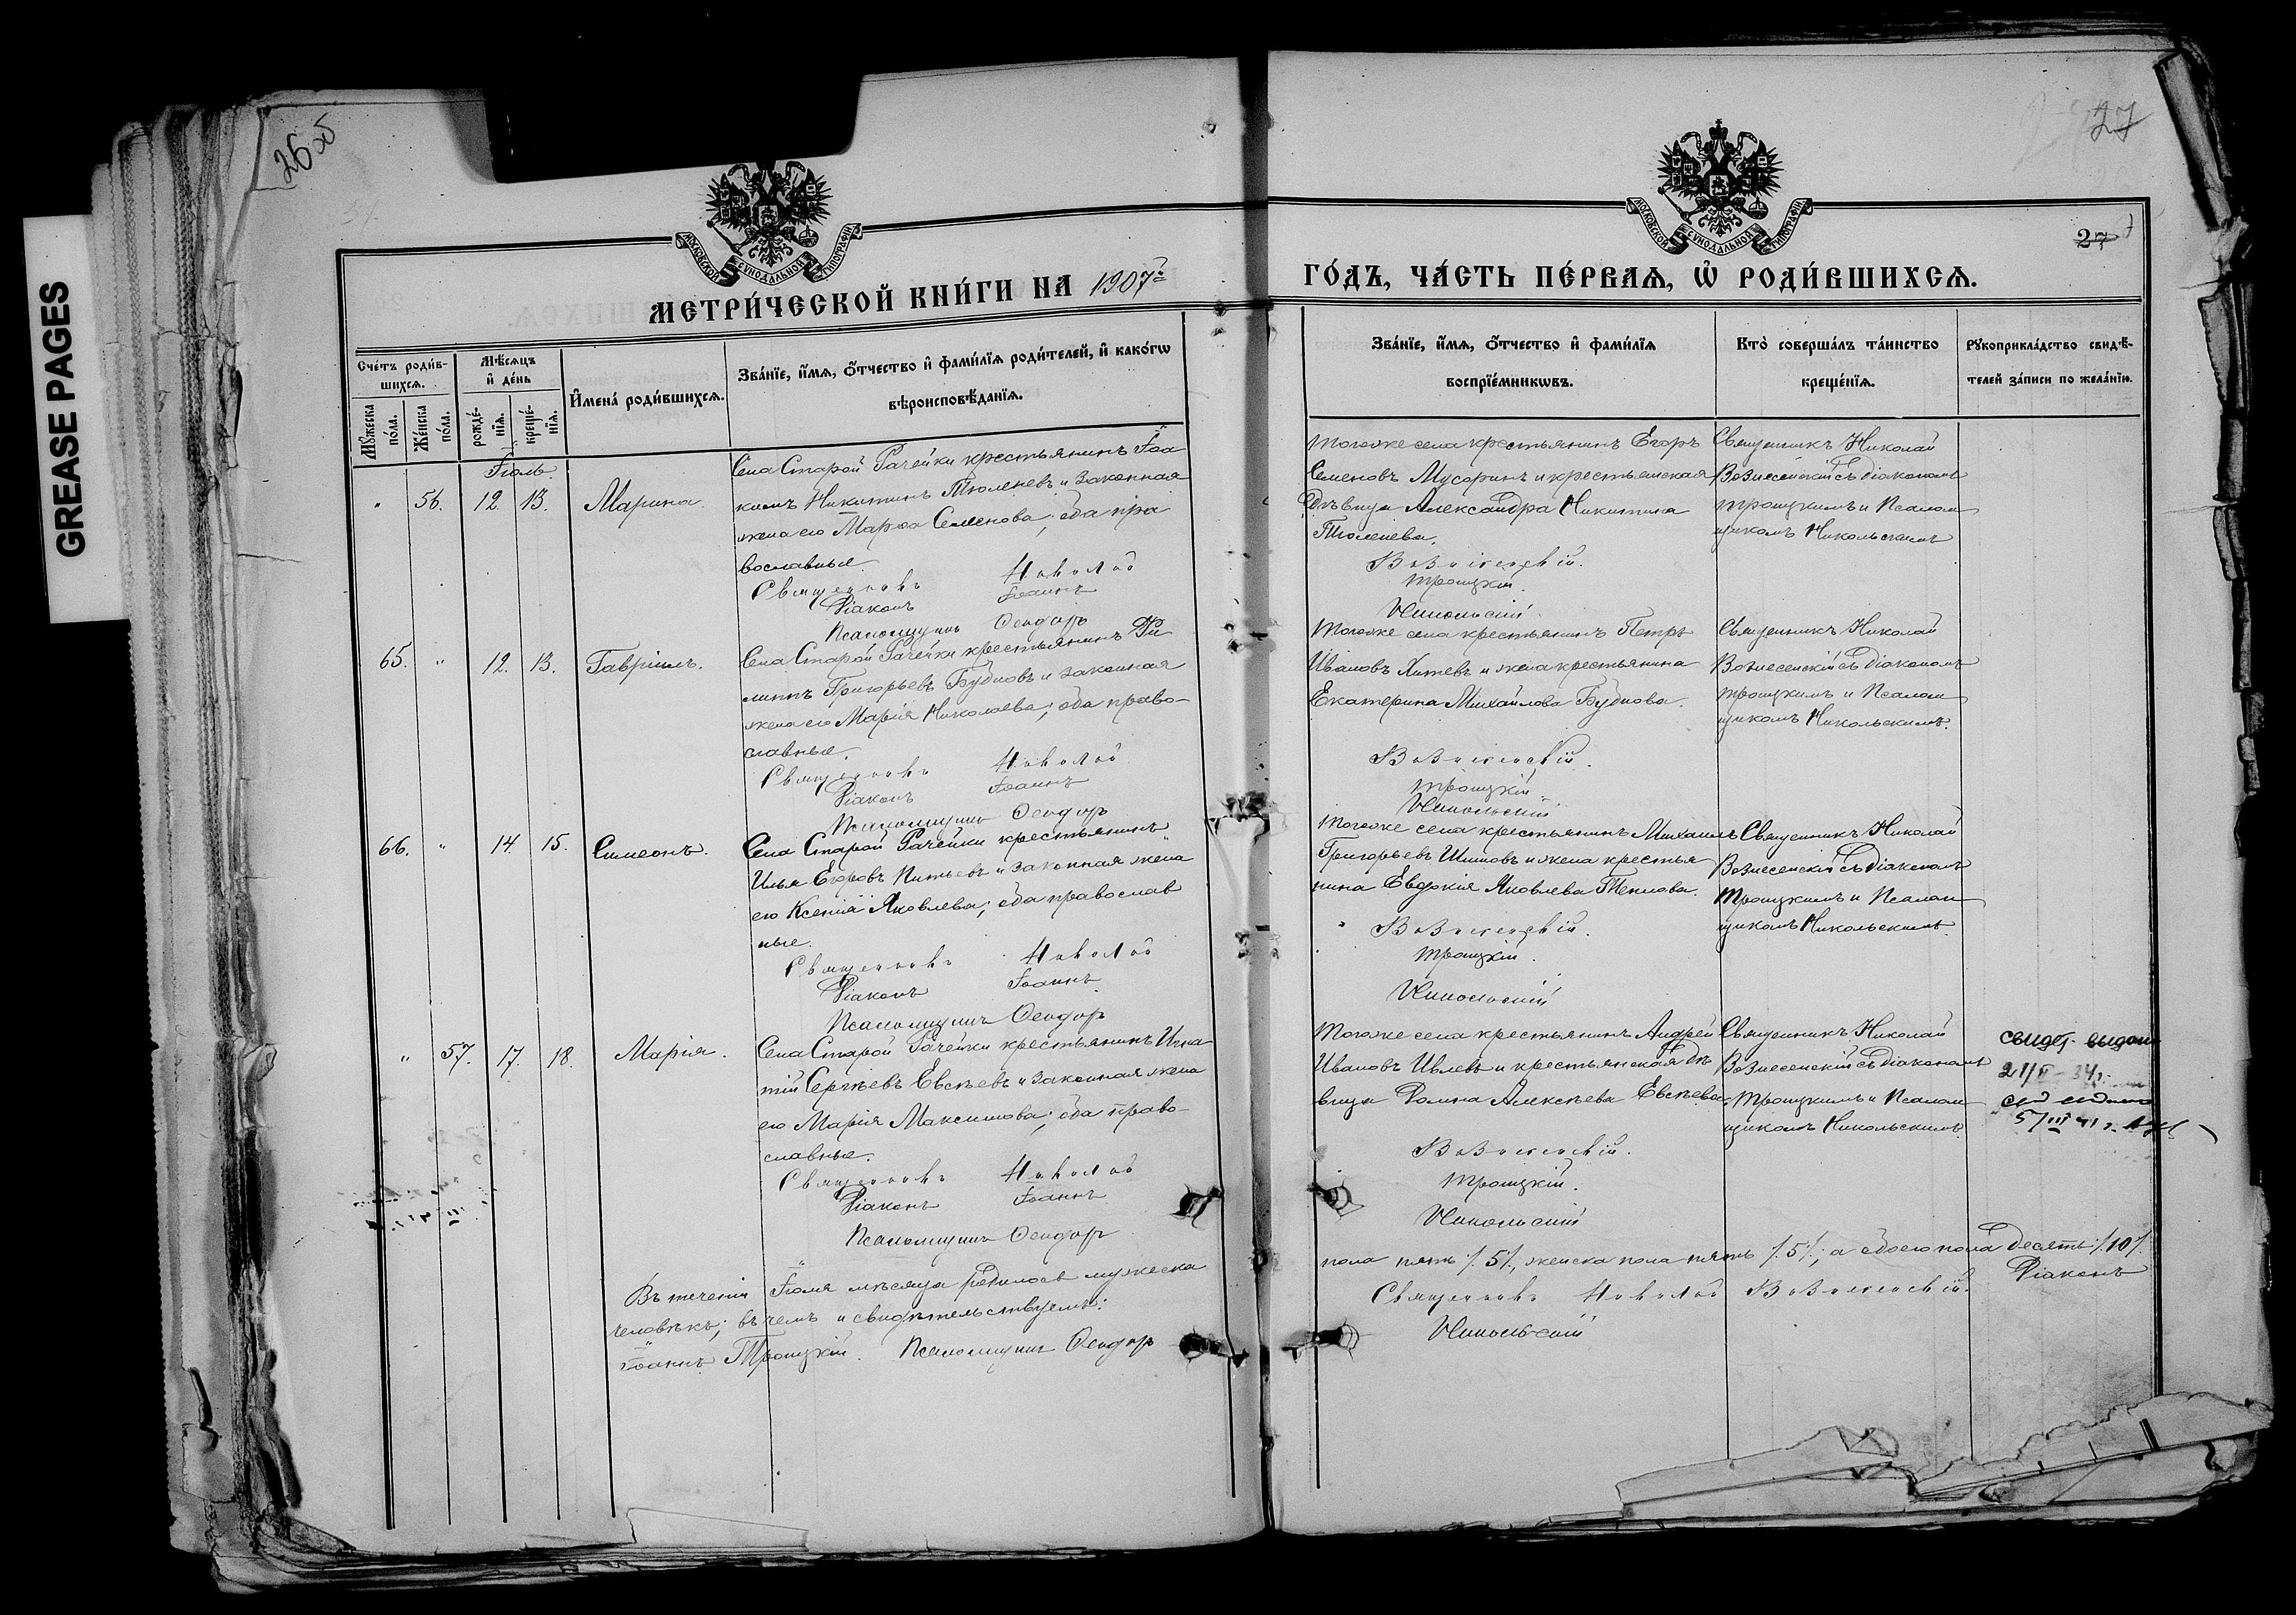 GREASE PAGES
26 об
27
27
МОСКОВСКОЙ СѴНОДАЛЬНОЙ ТИПОГРАФІИ
МОСКОВСКОЙ СѴНОДАЛЬНОЙ ТИПОГРАФІИ
МЕТРИ́ЧЕСКОЙ КНИ́ГИ НА 1907й
ГО́ДЪ, ЧА́СТЬ ПЕ́РВАѦ, Ѡ҆ РОДИ́ВШИХСѦ.
Сче́тъ роди́в-
шихсѧ.
Мѣ́сѧцъ
и҆ де́нь
Мꙋ́жеска
по́ла.
Же́нска
по́ла.
рожде́-
нїѧ.
креще́-
нїѧ.
И҆мена̀ роди́вшихсѧ.
Зва́нїе, и҆́мѧ, ѻ҆́тчество и҆ фами́лїѧ роди́телей, и҆ како́гѡ
вѣроисповѣ́данїѧ.
Зва́нїе, и҆́мѧ, ѻ҆́тчество и҆ фами́лїѧ
воспрїе́мникѡвъ.
Кто̀ соверша́лъ та́инство
креще́нїѧ.
Рꙋкоприкла́дство свидѣ́-
телей за́писи по жела́нїю.
Іюль
" 56. 12. 13. Марина.
Села Старой Рачейки крестьянинъ Іоа
кимъ Никитинъ Тюленевъ и законная
жена его Марѳа Семенова; оба пра
вославные.
Священникъ Николай
Діаконъ Іоаннъ
Псаломщикъ Ѳеодоръ
Тогоже села крестьянинъ Егоръ
Семеновъ Мусоринъ и крестьянская
дѣвица Александра Никитина
Тюленева.
Вознесенскій.
Троицкій.
Никольскій
Священникъ Николай
Вознесенскій съ діакономъ
Троицкимъ и Псалом
щикомъ Никольскимъ
65. " 12. 13. Гавріилъ.
Села Старой Рачейки крестьянинъ Фи
липпъ Григорьевъ Бубновъ и законная
жена его Марія Николаева; оба право-
славные.
Священникъ Николай
Діаконъ Іоаннъ
Псаломщикъ Ѳеодоръ
Тогоже села крестьянинъ Петръ
Ивановъ и жена крестьянина
Екатерина Михайлова Бубнова.
Вознесенскій.
Троицкій.
Никольскій
Священникъ Николай
Вознесенскій съ діакономъ
Троицкимъ и Псалом
щикомъ Никольскимъ.
66. " 14. 15. Симеонъ.
Села Старой Рачейки крестьянинъ
Илья Егоровъ и законная жена
его Ксенія Яковлева; оба православ
ные.
Священникъ Николай
Діаконъ Іоаннъ
Псаломщикъ Ѳеодоръ
Тогоже села крестьянинъ Михаилъ
Григорьевъ и жена крестья
нина Евдокія Яковлева
Вознесенскій.
Троицкій.
Никольскій
Священникъ Николай
Вознесенскій съ діакономъ
Троицкимъ и Псалом
щикомъ Никольскимъ.
" 57. 17. 18. Марія.
Села Старой Рачейки крестьянинъ Игна
тій Сергѣевъ Евсѣевъ и законная жена
его Марія Максимова; оба право-
славные.
Священникъ Николай
Діаконъ Іоаннъ
Псаломщикъ Ѳеодоръ
Тогоже села крестьянинъ Андрей
Ивановъ Ивлевъ и крестьянская дѣ
вица Домна Алексѣева Евсѣева.
Вознесенскій.
Троицкій.
Никольскій
Священникъ Николай
Вознесенскій съ діакономъ
Троицкимъ и Псалом
щикомъ Никольскимъ
свидет. выдано
5/III 41 г.
Въ теченіи Іюля мѣсяца родилось мужеска
пола пять /.5/., женска пола пять /.5/.; а обоего пола десять /.10/.
человѣкъ; въ чемъ и свидѣтельствуемъ:
Священникъ Николай Вознесенскій. Діаконъ
Іоаннъ Троицкій. Псаломщикъ Ѳеодоръ
Никольскій